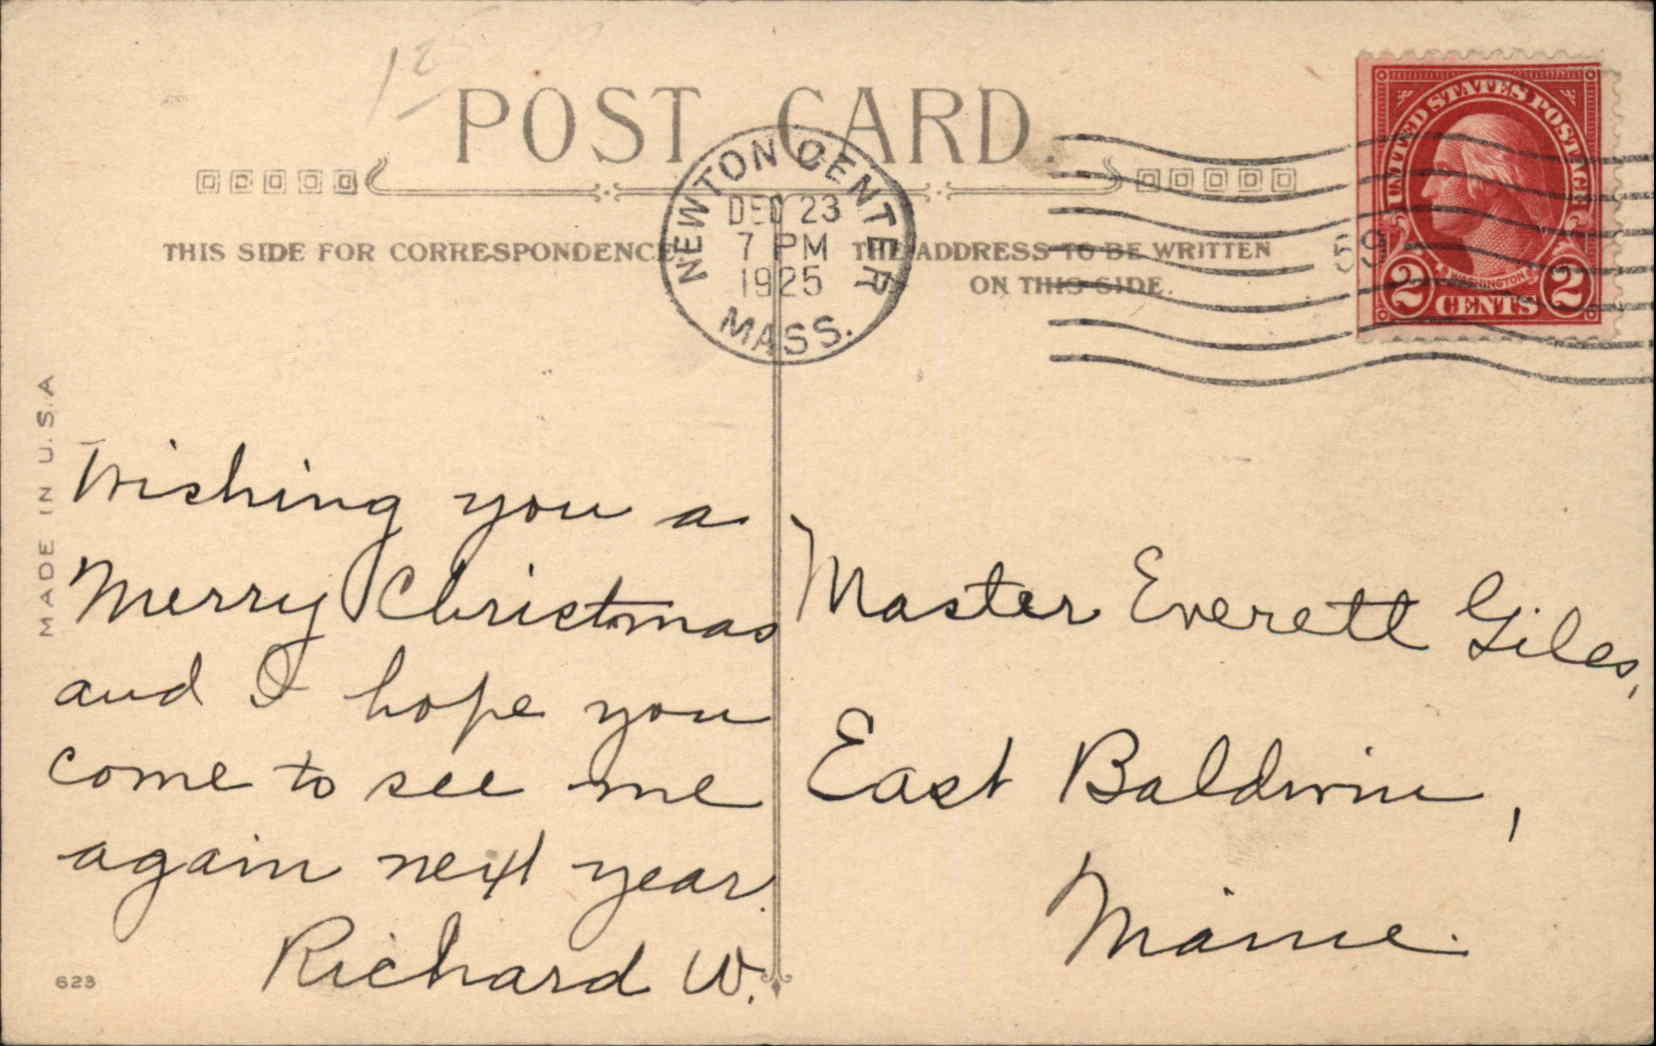 POST CARD.
THIS SIDE FOR CORRESPONDENCE
THE ADDRESS TO BE WRITTEN
ON THIS SIDE.
NEWTON CENTER
DEC 23
7 PM
1925
MASS.
UNITED STATES POSTAGE
WASHINGTON
2 CENTS 2
59
MADE IN U.S.A
Wishing you a
Merry Christmas
and I hope you
come to see me
again next year.
Richard W.
Master Everett Giles,
East Baldwin,
Maine.
623